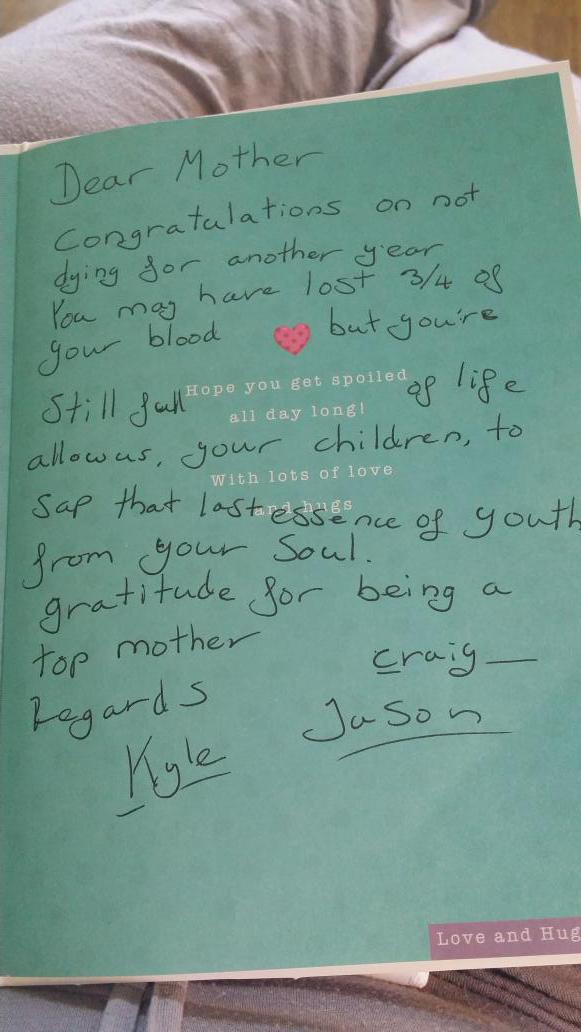 Dear Mother
Congratulations on not
dying for another year
You may have lost 3/4 of
your blood but you're
Hope you get spoiled
Still full of life
all day long!
allow us, your children, to
With lots of love
sap that last essence of youth
and hugs
from your Soul.
gratitude for being a
top mother
Craig
Regards
Jason
Kyle
Love and Hug